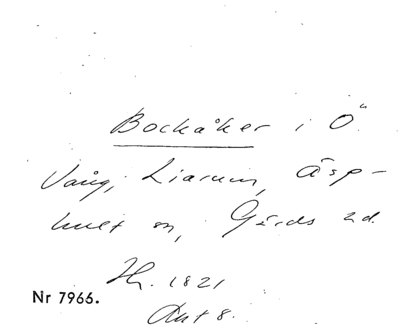 Bockåker i Ö.
Vång, Liarum, Äsp-
hult sn, Gärds hd.
Hr. 1821
Akt 8.
Nr 7966.